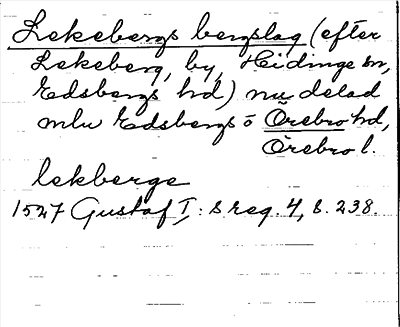 Lekebergs bergslag (efter
Lekeberg, by, Hidinge sn,
Edsbergs hd) nu delad
mln Edsbergs o Örebro hd,
Örebro l.
lekberge
1527 Gustaf I:s reg. 4, s. 238.